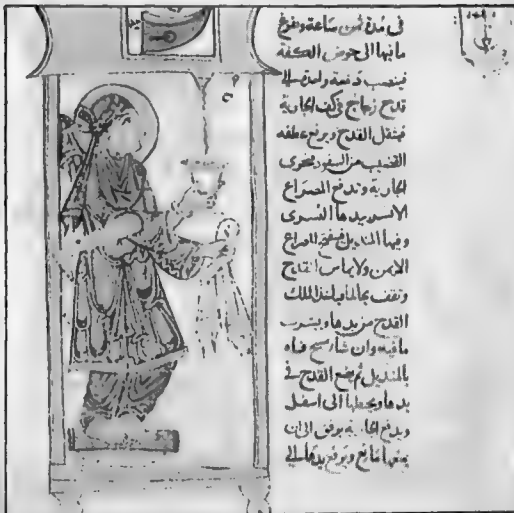 في مدة ثمن ساعة ويفرغ
ما فيها الى حوض الكفة
فينصب دفعة واحدة الى
قدح زجاج في كف الجارية
فيثقل القدح ويرفع عطفه
القضيب عن السفود فتجرى
الجارية وتدفع المصراع
الايسر بيدها اليسرى
وفيها المنديل فينفتح المصراع
الايمن ولا يماس القدح
وتقف بحالها فياخذ الملك
القدح من يدها ويشرب
ما فيه وان شا مسح فاه
بالمنديل ثم يضع القدح في
يدها ويحطها الى اسفل
ويدفع الجارية برفق الى ان
يمنعها مانع ويرفع يدها الى